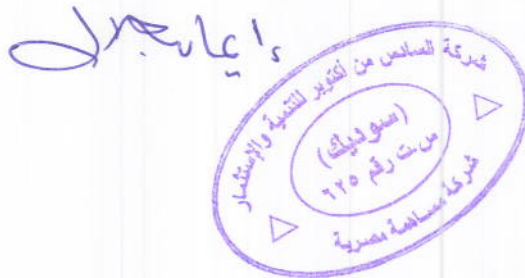 إيمان جلال
شركة السادس من أكتوبر للتنمية والإستثمار
(سوديك)
س.ت رقم ٦٢٥
شركة مساهمة مصرية